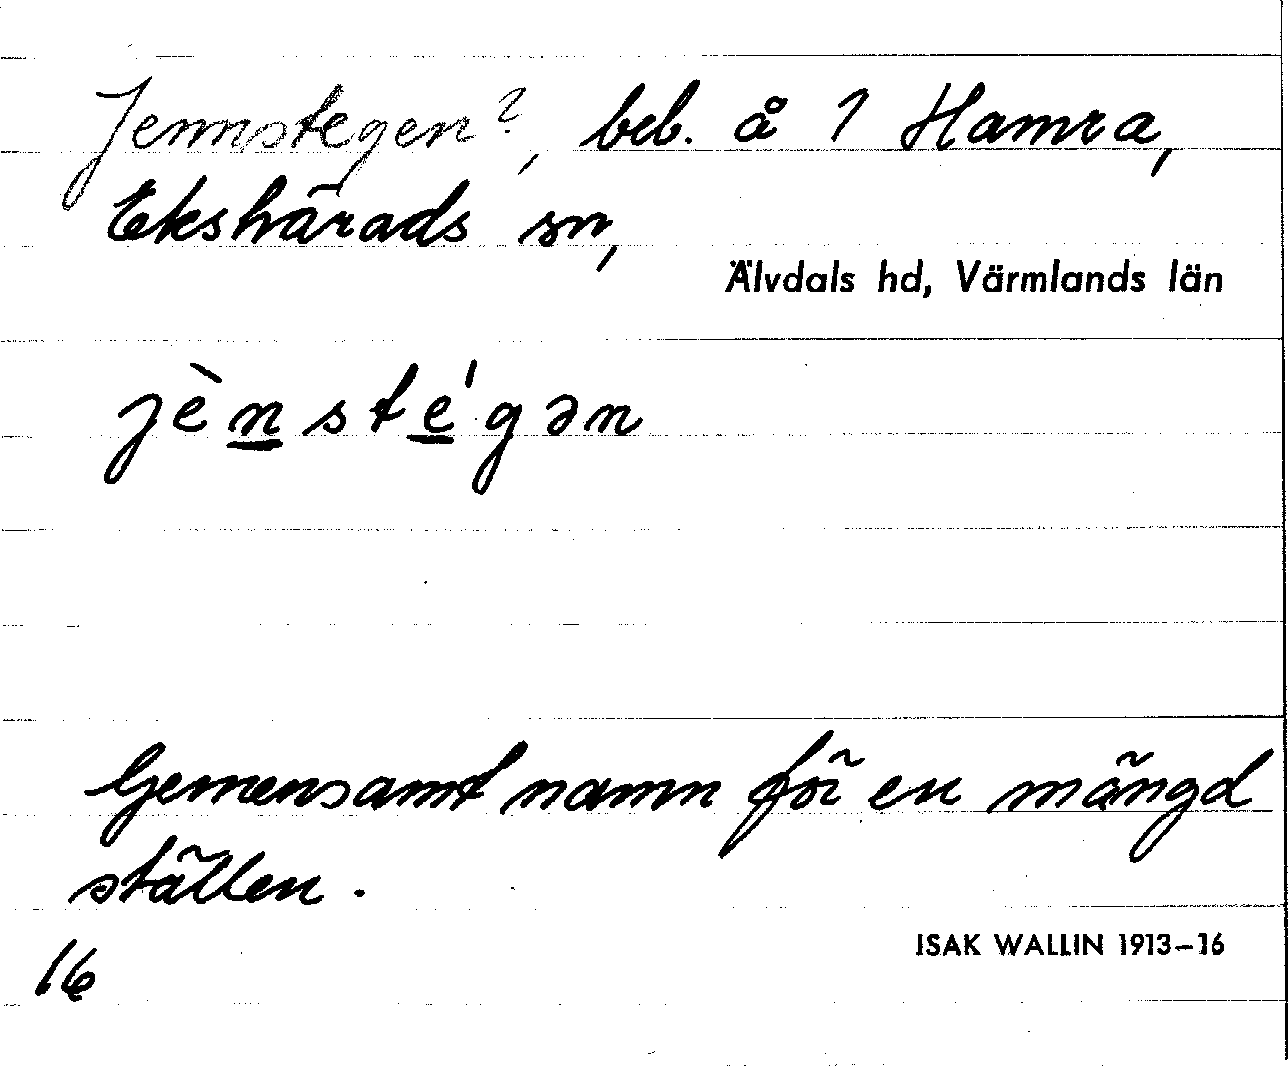 Jennstegen?, beb. å 1 Hamra,
Ekshärads sn,
Älvdals hd, Värmlands län
jènsté'gən
Gemensamt namn för en mängd
ställen.
ISAK WALLIN 1913–16
16